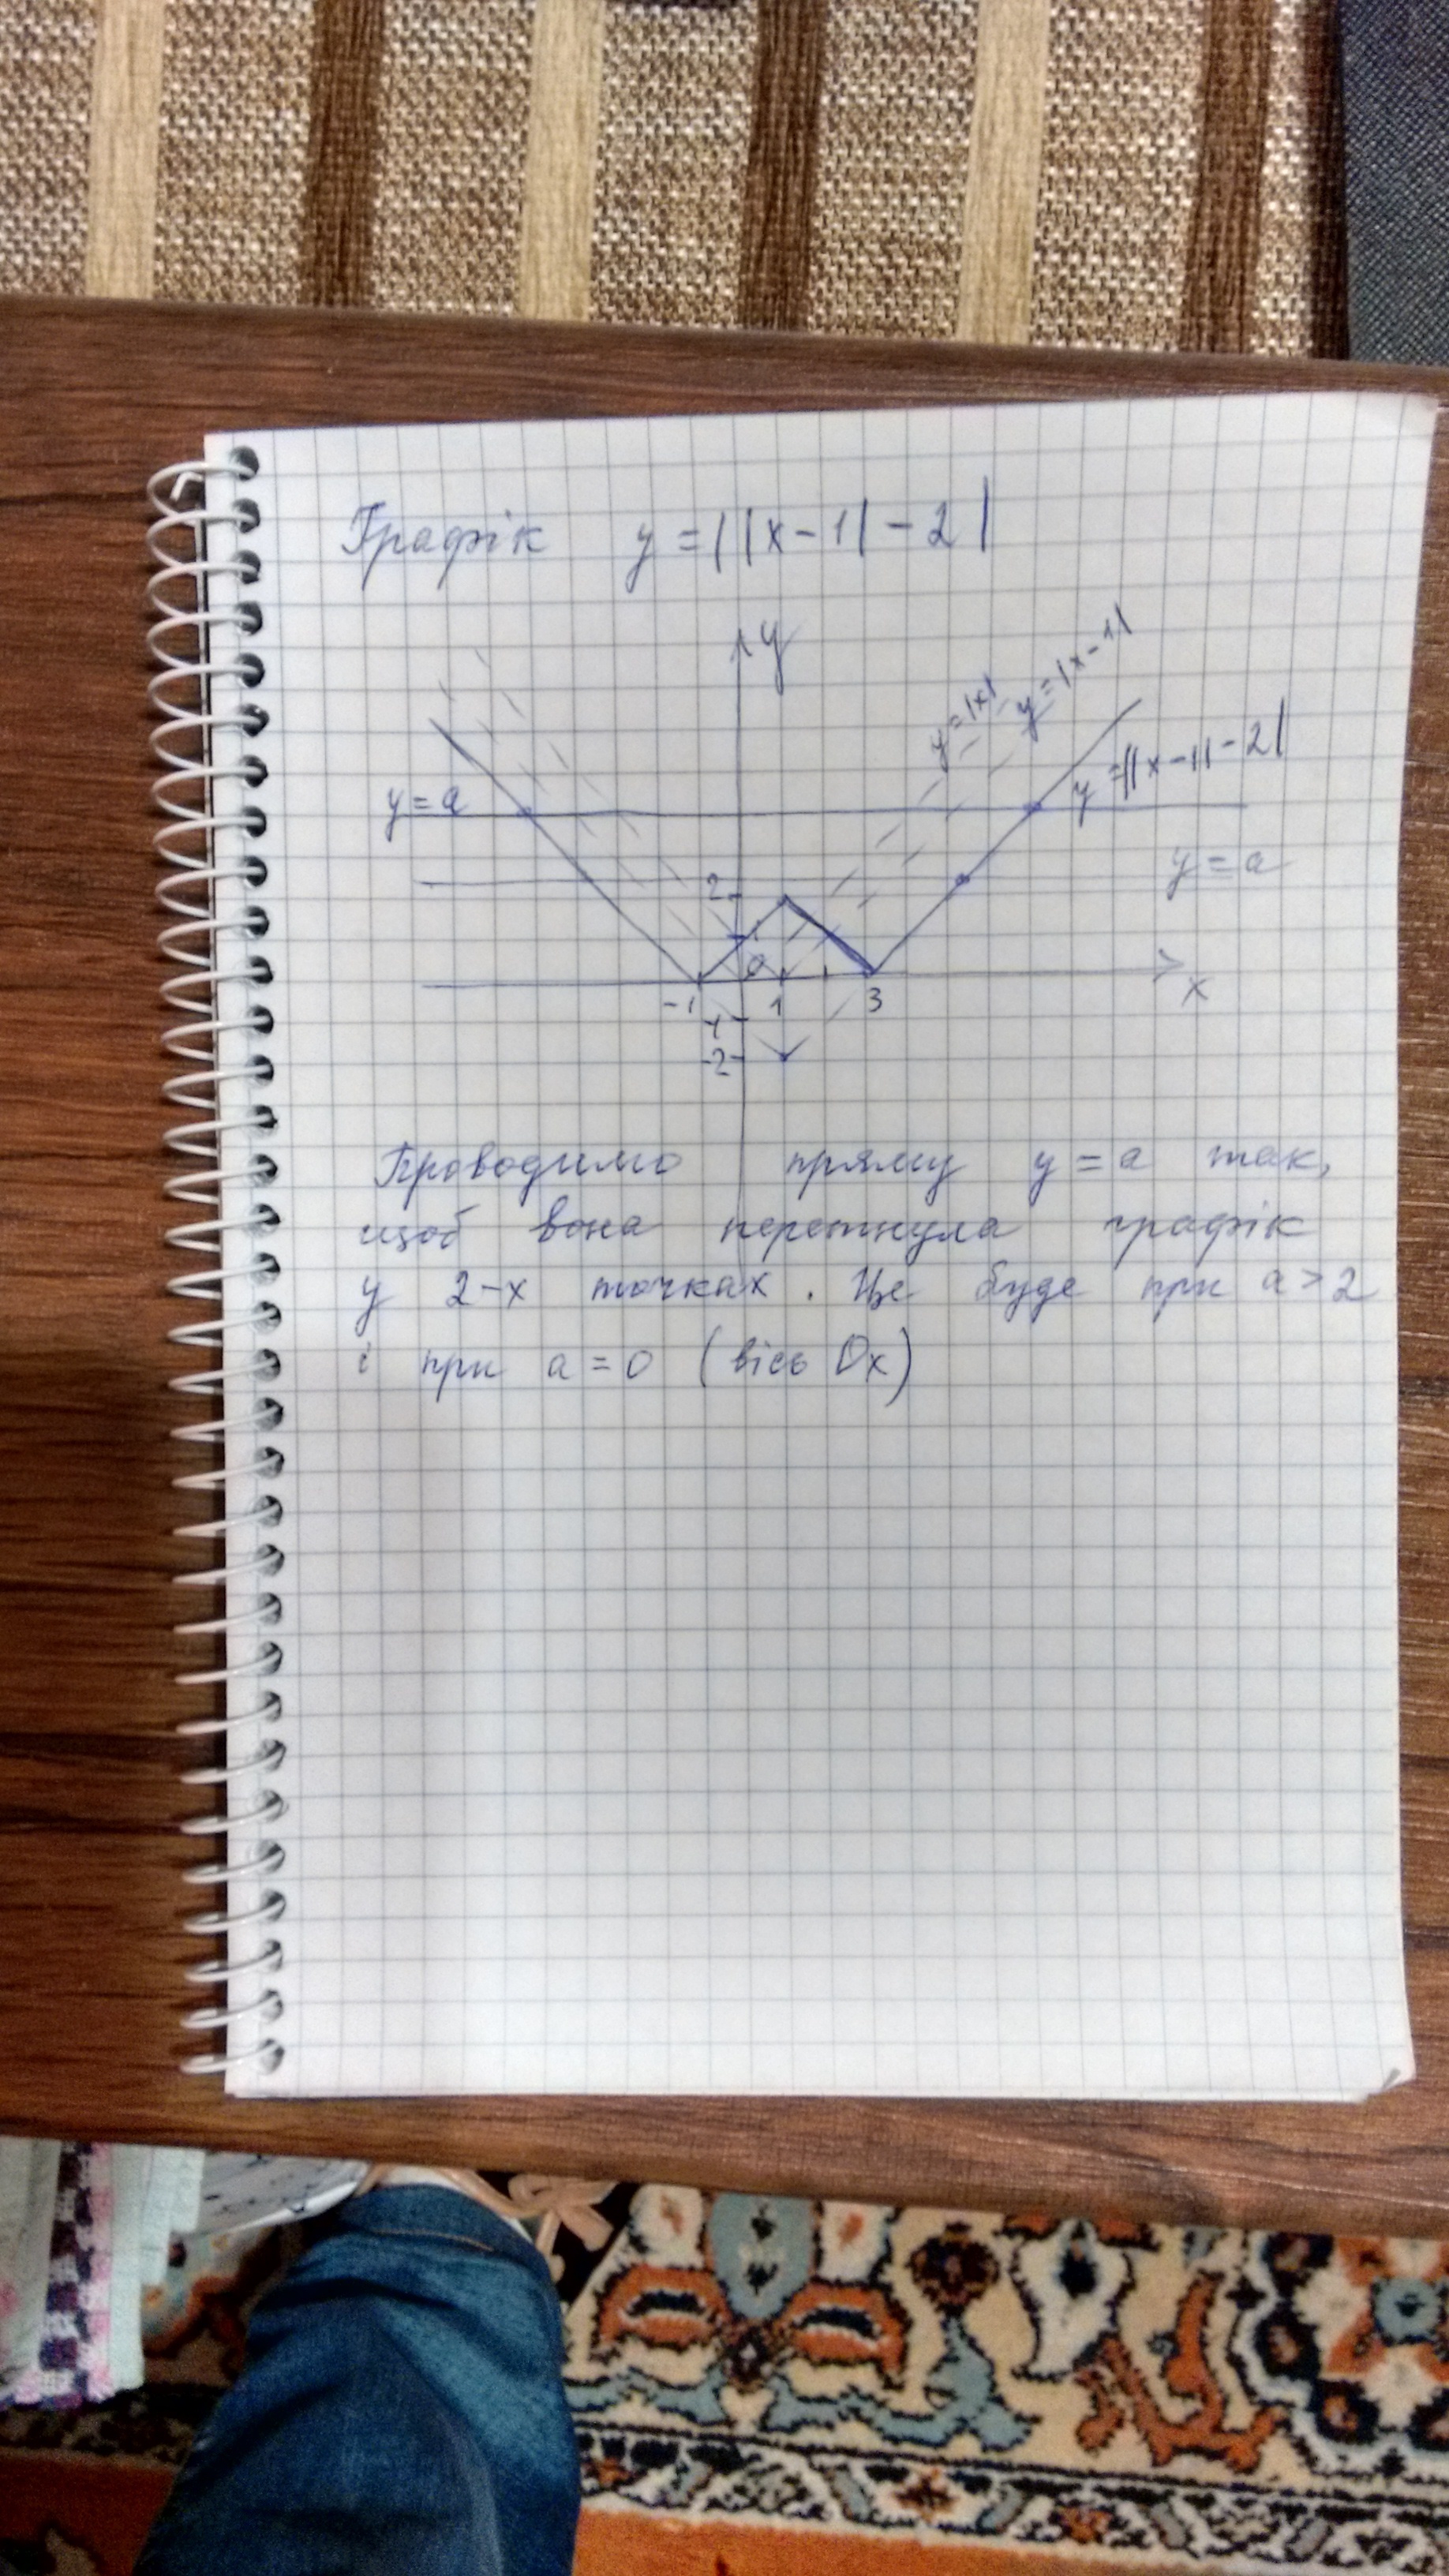 Графік y = ||x-1| - 2|
y
y=|x|
y=|x-1|
y=||x-1|-2|
y=a
y=a
2
0
x
-1 1 3
-1
-2
Проводимо пряму y=a так,
щоб вона перетнула графік
у 2-х точках. Це буде при a>2
і при a=0 (вісь Ox)